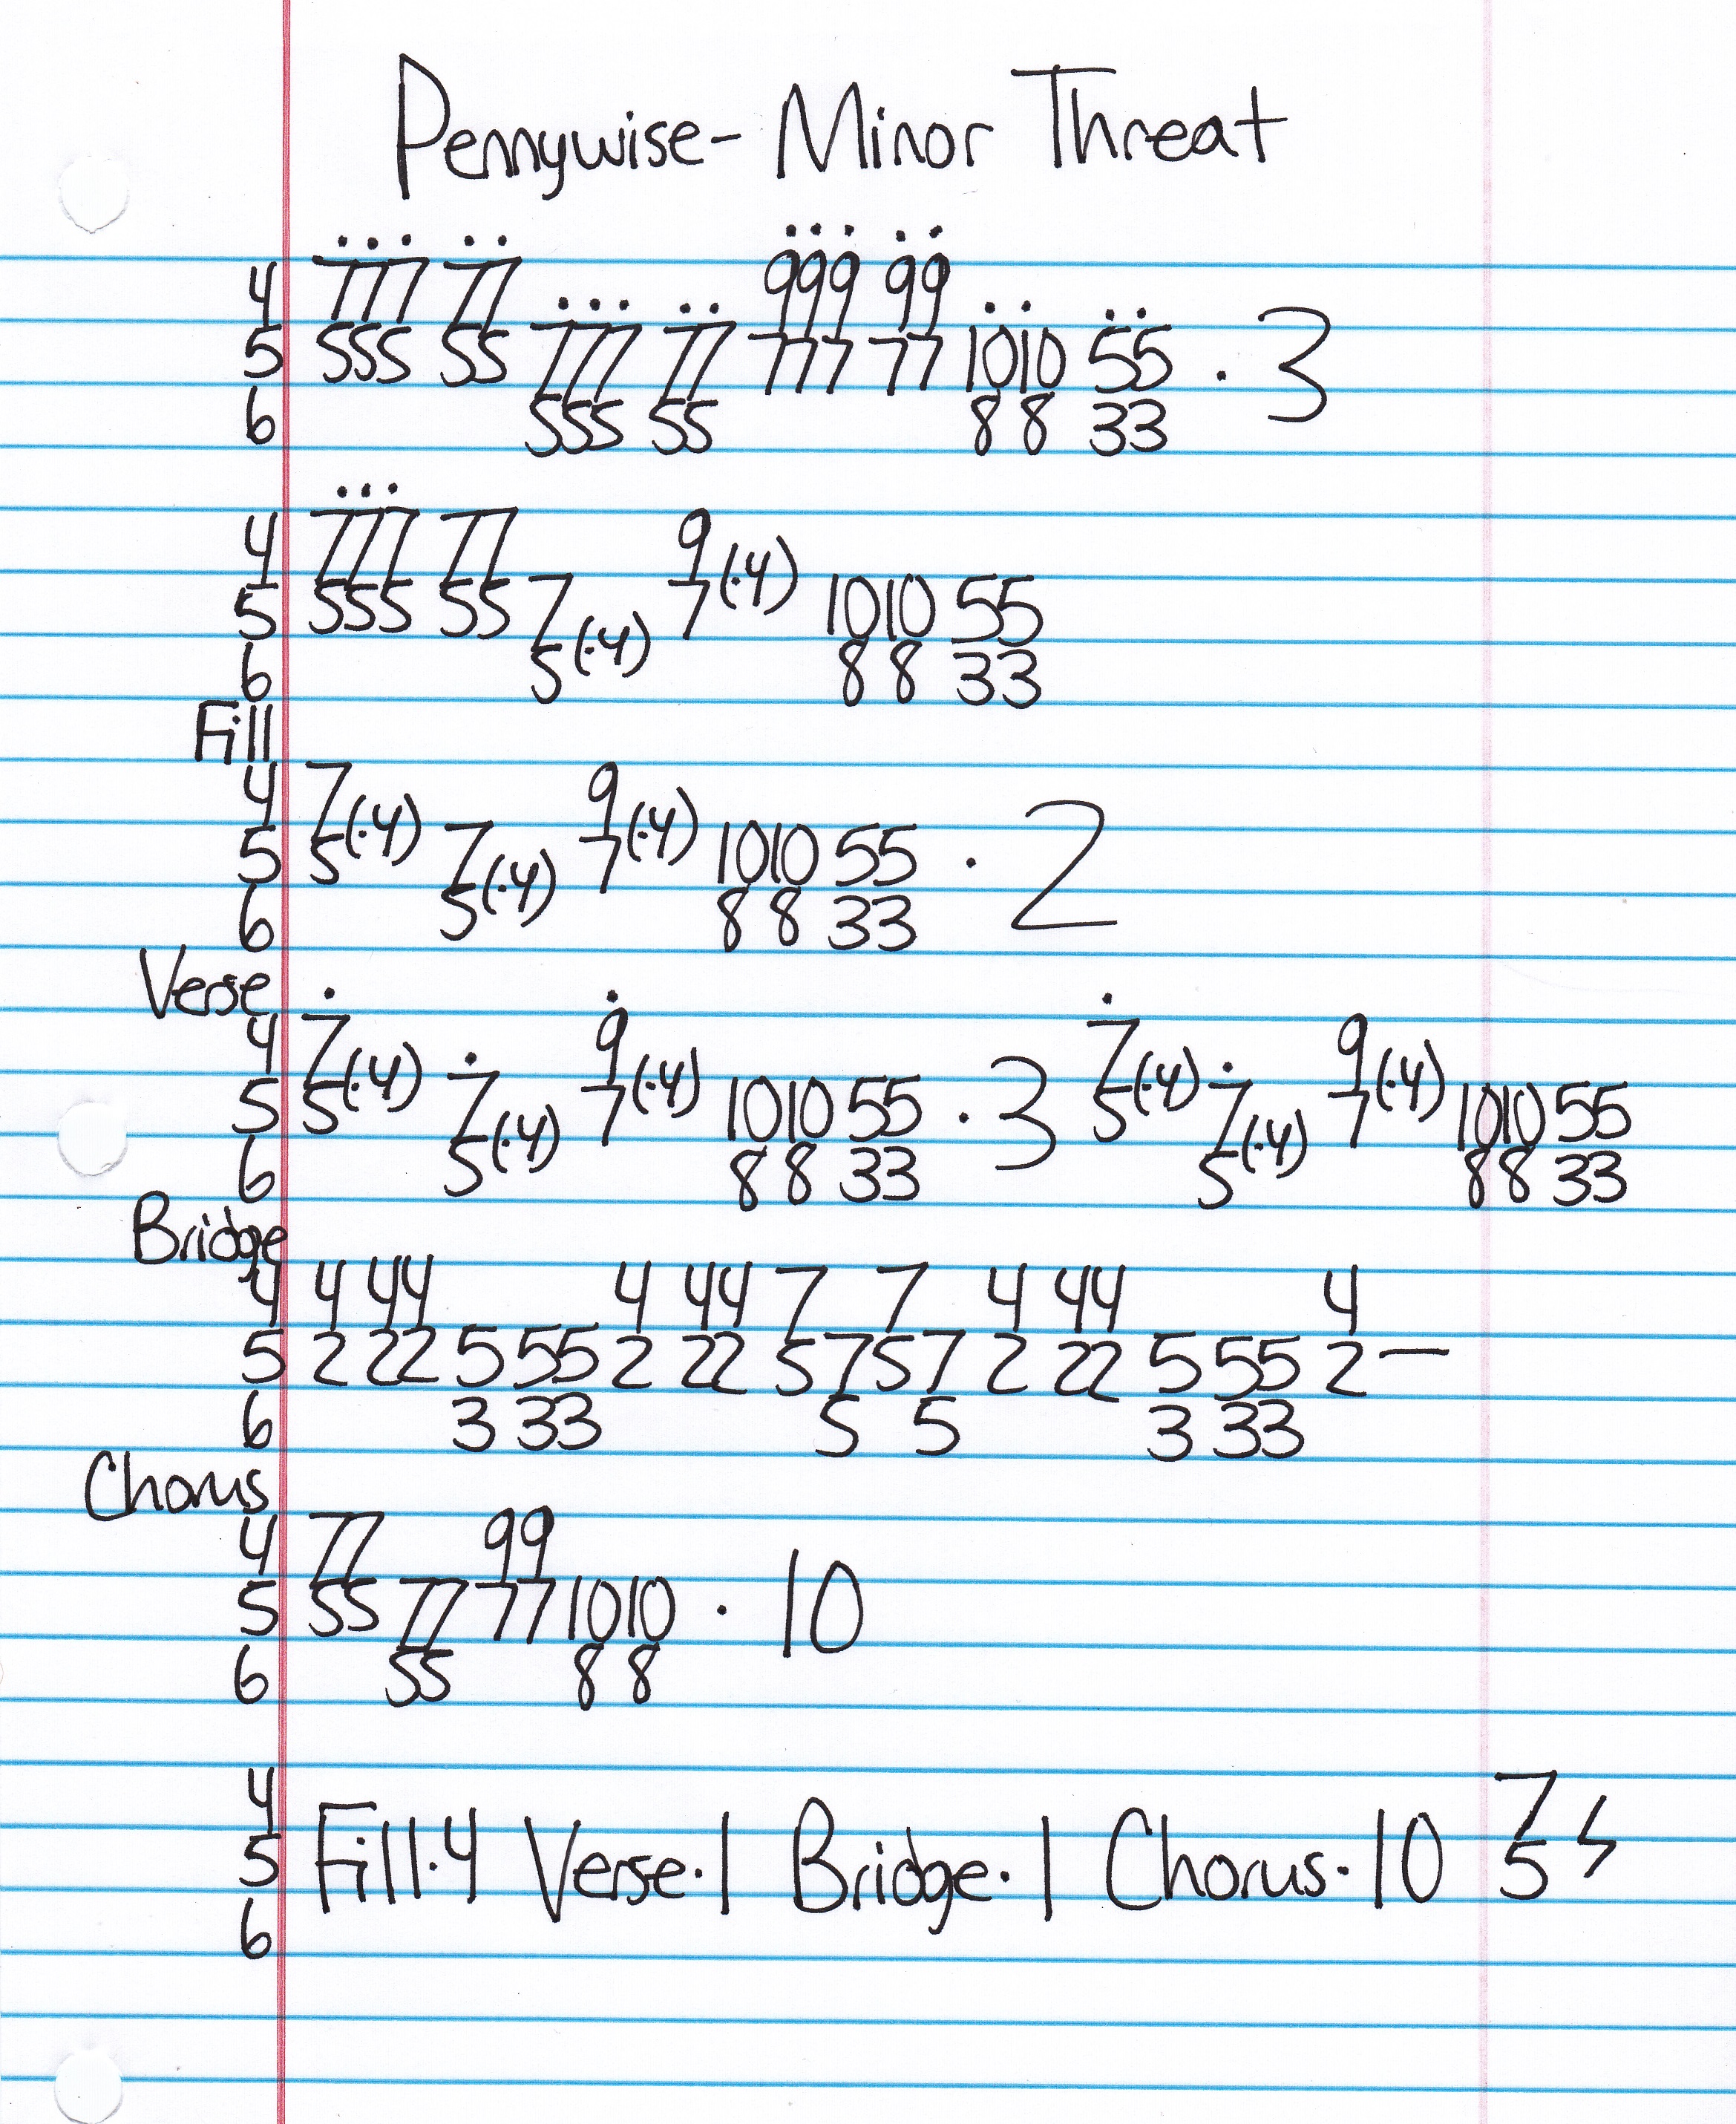 Pennywise- Minor Threat
4 777 77 999 99
5 555 55 777 77 777 77 1010 55 · 3
6 555 55 8 8 33
4 777 77 9 (·4)
5 555 55 7 7 1010 55
6 5 (·4) 8 8 33
Fill
4 7 (·4) 9 (·4)
5 5 7 7 1010 55 · 2
6 5 (·4) 8 8 33
Verse
4 7 (·4) 9 (·4) 7 (·4) 9 (·4)
5 5 7 7 1010 55 · 3 5 7 7 1010 55
6 5 (·4) 8 8 33 5 (·4) 8 8 33
Bridge
4 4 44 4 44 7 7 4 44 4
5 2 22 5 55 2 22 5 7 5 7 2 22 5 55 2 —
6 3 33 5 5 3 33
Chorus
4 77 99
5 55 77 77 1010 · 10
6 55 8 8
4 7
5 Fill·4 Verse·1 Bridge·1 Chorus·10 5
6